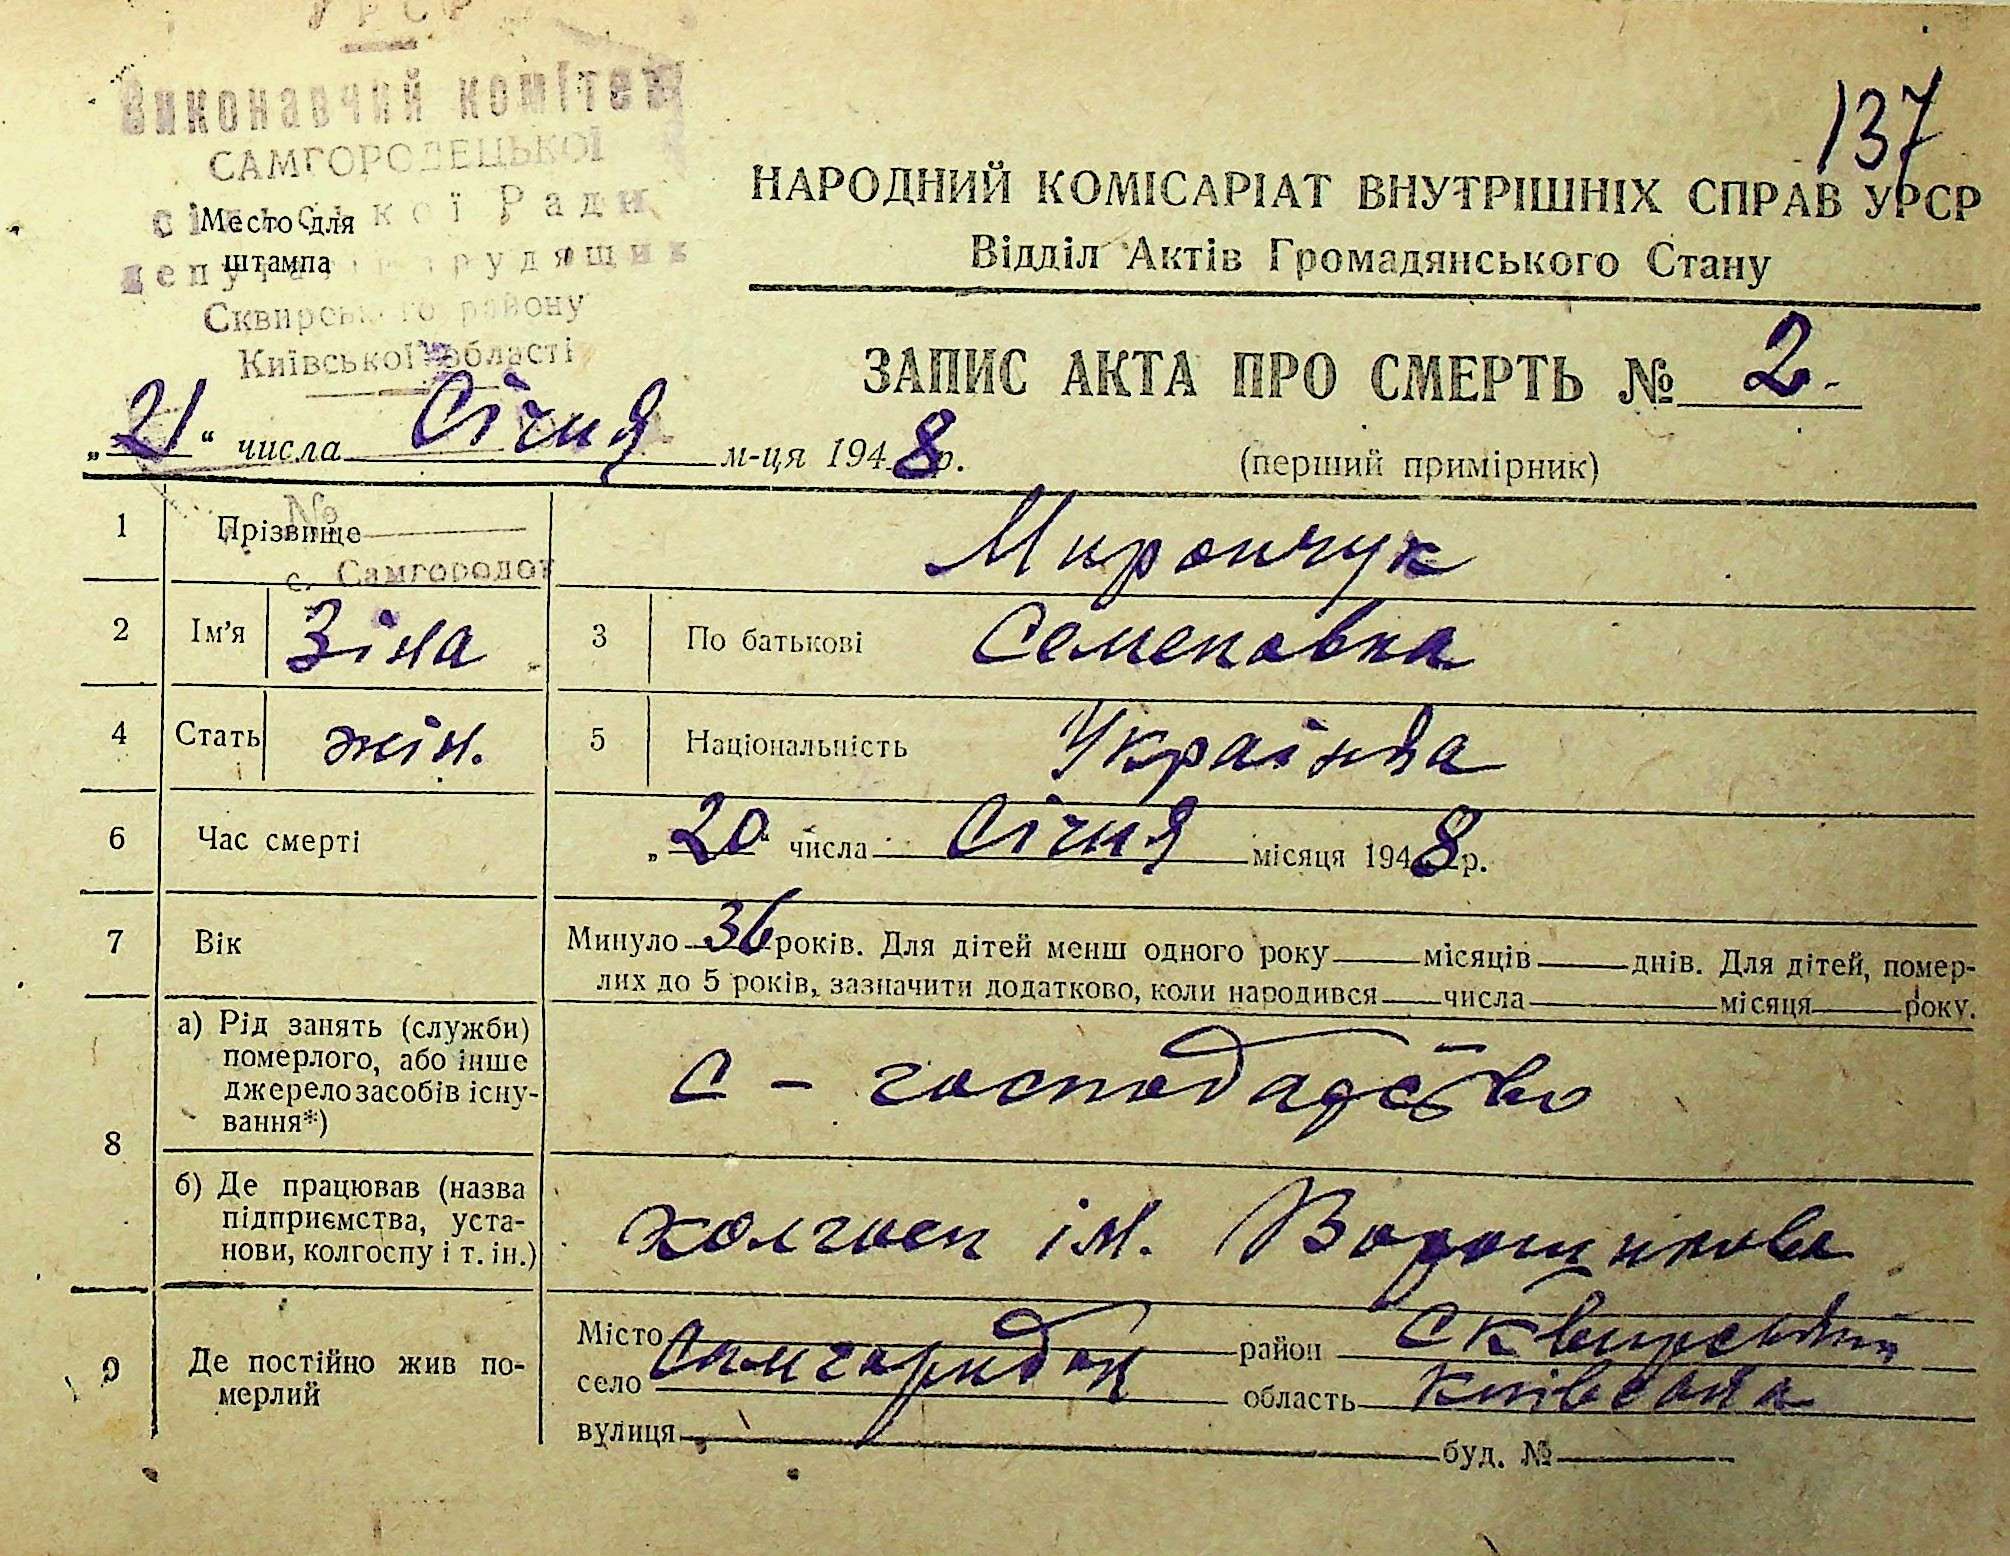 УРСР
137
Виконавчий комітет
САМГОРОДЕЦЬКОЇ
сільської Ради
депутатів трудящих
Сквирського району
Київської області
Место для
штампа
НАРОДНИЙ КОМІСАРІАТ ВНУТРІШНІХ СПРАВ УРСР
Відділ Актів Громадянського Стану
ЗАПИС АКТА ПРО СМЕРТЬ № 2.
„21“ числа Січня м-ця 1948 р.
(перший примірник)
№
с. Самгородок
1 Прізвище Мирончук
2 Ім'я Зіна 3 По батькові Семеновна
4 Стать жін. 5 Національність Українка
6 Час смерті „20“ числа Січня місяця 1948 р.
7 Вік Минуло 36 років. Для дітей менш одного року місяців днів. Для дітей, помер-
лих до 5 років, зазначити додатково, коли народився числа місяця року.
8 а) Рід занять (служби)
померлого, або інше
джерело засобів існу-
вання*)
с - господарство
б) Де працював (назва
підприємства, уста-
нови, колгоспу і т. ін.)
колгосп ім. Ворошилова
9 Де постійно жив по-
мерлий
Місто район Сквирський
село Самгородок область Київська
вулиця буд. №